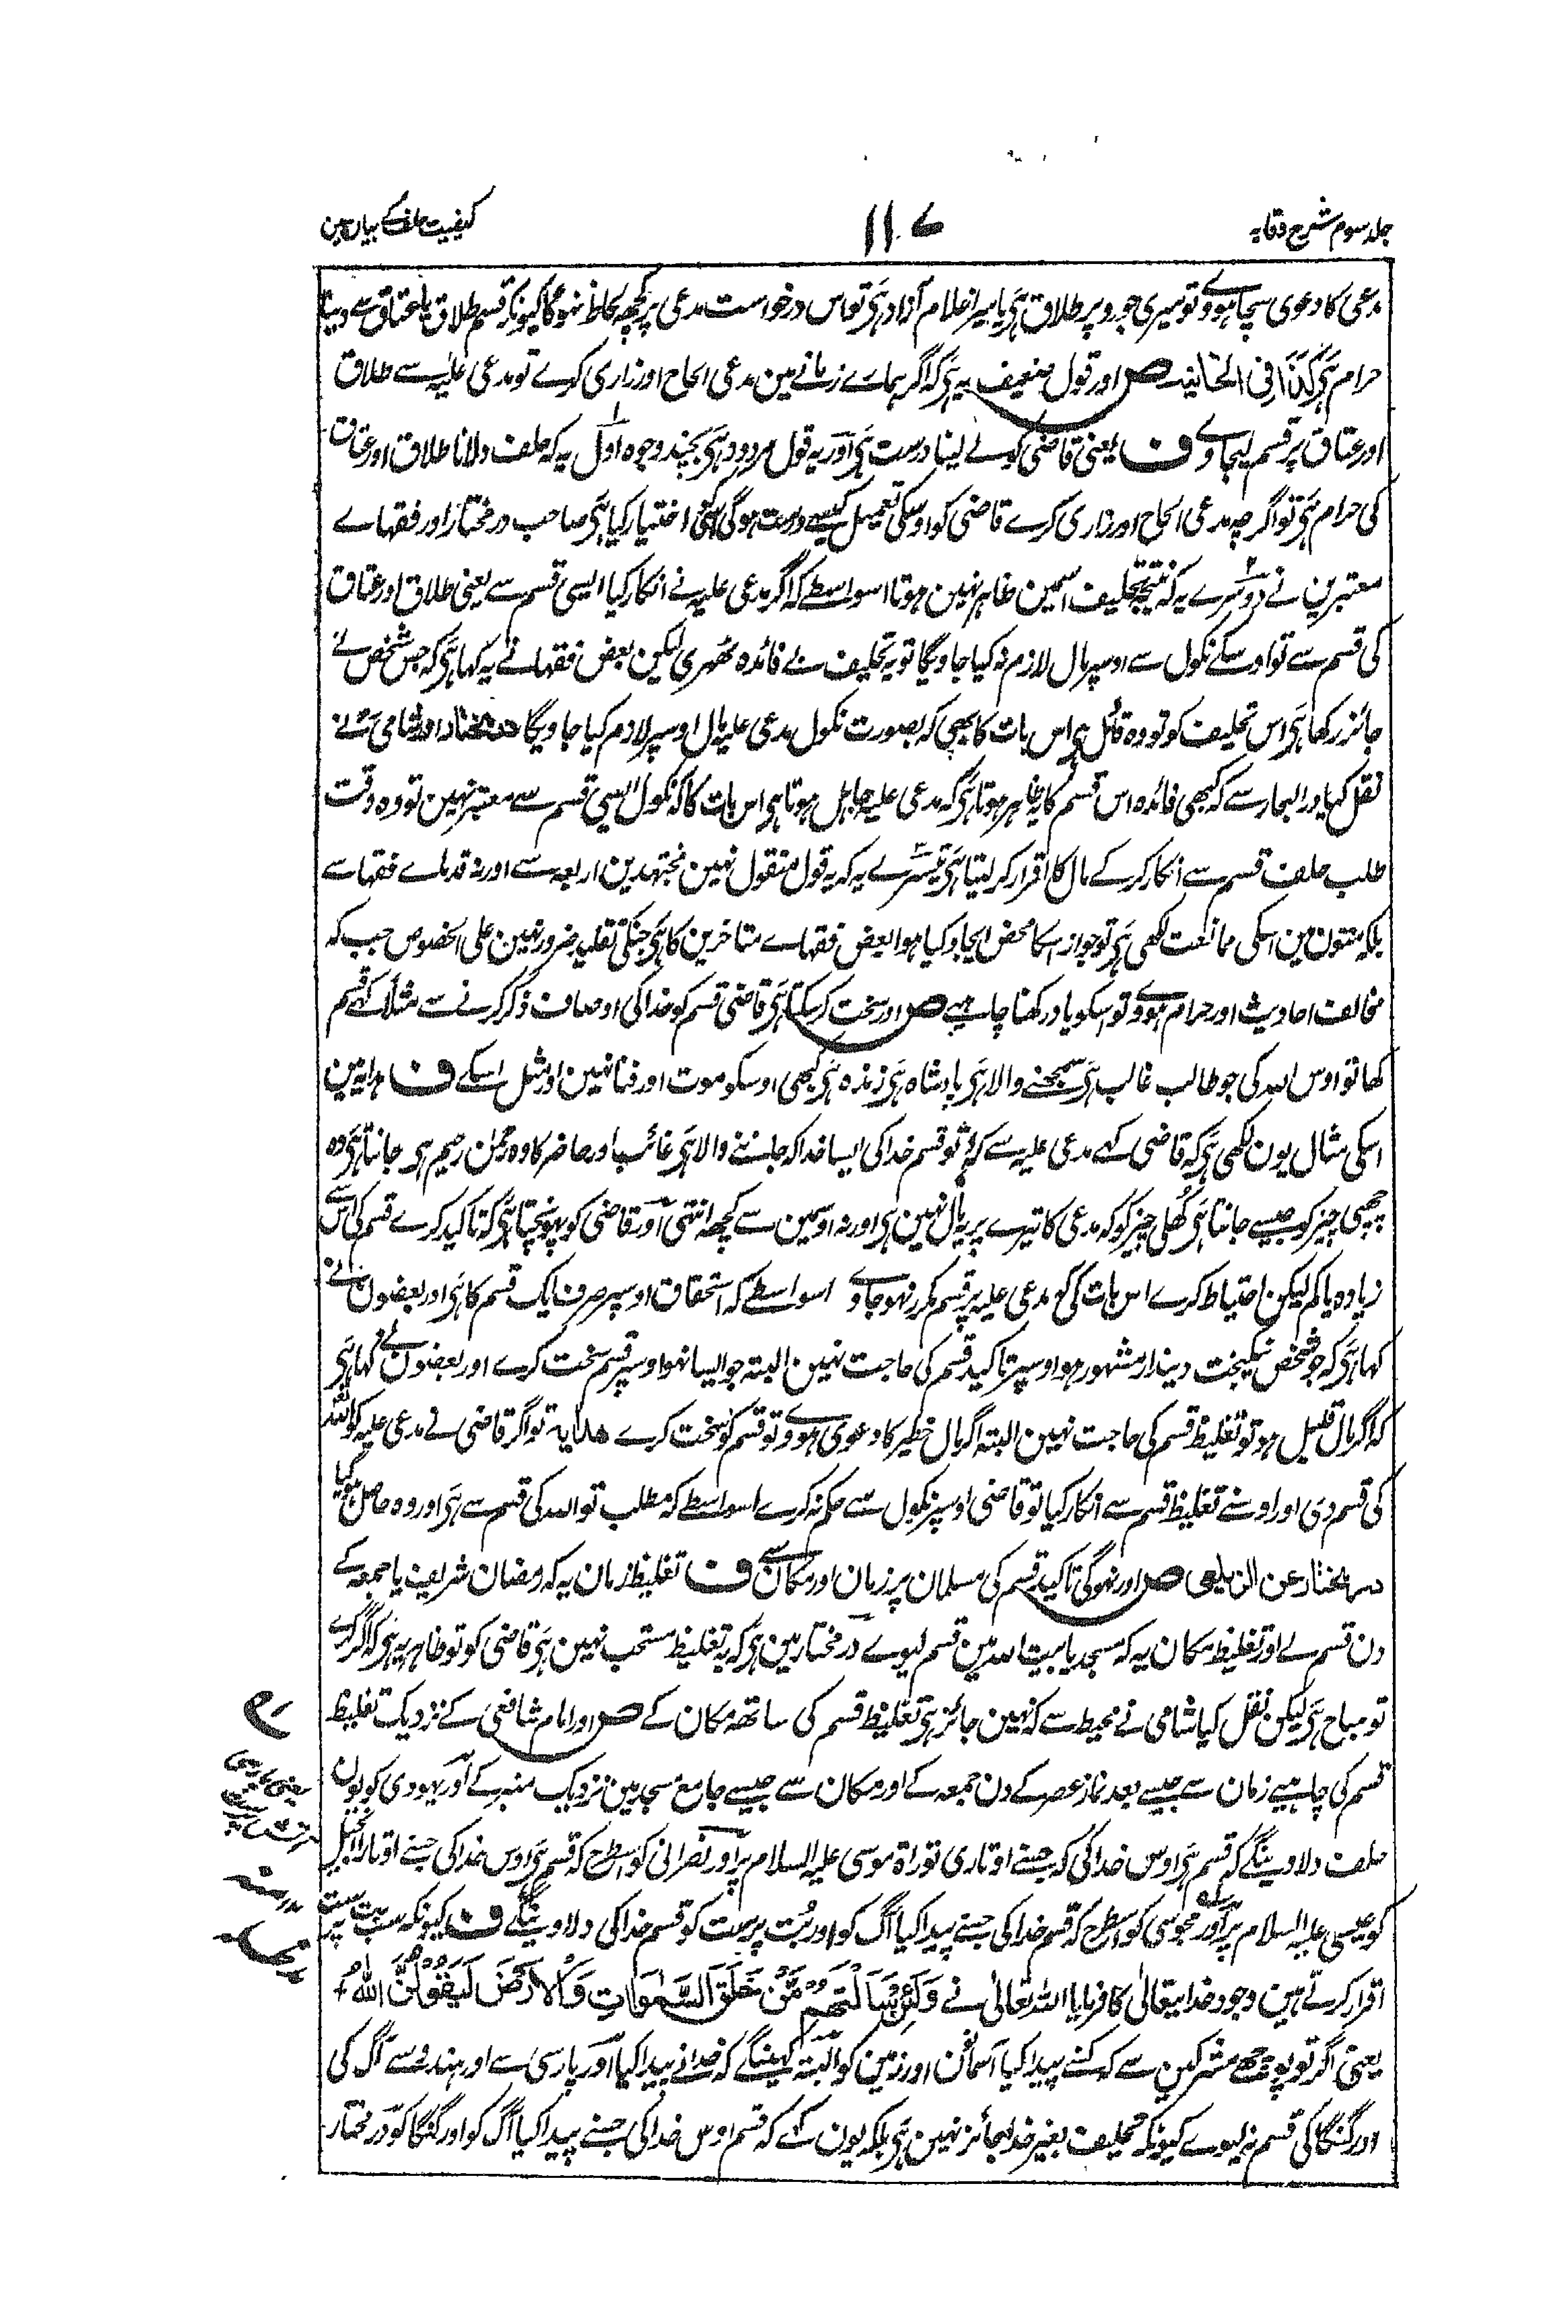 جلد سوم شرح وقایہ
۱۱۷
کیفیت حلف کے بیان مین
مدعی کا دعوی سچا ہووے تو میری جورو پر طلاق ہی یا میرا غلام آزاد ہی تو اس درخواست مدعی پر کچھ لحاظ نہوگا کیونکہ قسم طلاق یا عتاق سے دینا
حرام ہی کَذَا فِی الخانیة ص اور قول ضعیف یہ ہی کہ اگر ہمارے زمانے مین مدعی الحاح اور زاری کرے تو مدعی علیہ سے طلاق
اور عتاق پر قسم لیجاوے ف یعنی قاضی کو لے لینا درست ہی اور یہ قول مردود ہی بچند وجوہ اول یہ کہ حلف دلانا طلاق اور عتاق
کی حرام ہی تو اگرچہ مدعی الحاح اور زاری کرے قاضی کو اوسکی تعمیل کیسے درست ہوگی اختیار کیا ہی صاحب درمختار اور فقہاے
معتبرین نے دوسرے یہ کہ نتیجہ تحلیف اسمین ظاہر نہین ہوتا اسواسطے کہ اگر مدعی علیہ نے انکار کیا ایسی قسم سے یعنی طلاق اور عتاق
کی قسم سے تو اوسکے نکول سے اوسپر مال لازم نہ کیا جاویگا تو یہ تحلیف بے فائدہ ٹھہری لیکن بعض فقہا نے یہ کہا ہی کہ جس شخص نے
جائز رکھا ہی اس تحلیف کو تو وہ قائل ہی اس بات کا بھی کہ بصورت نکول مدعی علیہ مال اوسپر لازم کیا جاویگا درمختار اور شامی نے
نقل کیا درر البحار سے کہ کبھی فائدہ اس قسم کا یہ ظاہر ہوتا ہی کہ مدعی علیہ جاہل ہوتا ہی اس بات کا کہ نکول ایسی قسم سے معتبر نہین تو وہ وقت
طلب حلف قسم سے انکار کر کے مال کا اقرار کر لیتا ہی تیسرے یہ کہ یہ قول منقول نہین مجتہدین اربعہ سے اور نہ قدماے فقہا سے
بلکہ متون مین اسکی ممانعت لکھی ہی تو جواز اسکا محض ایجاد کیا ہوا بعض فقہاے متاخرین کا ہی جنکی تقلید ضرور نہین علی الخصوص جب کہ
مخالف احادیث اور حرام ہووے تو اسکو یاد رکھنا چاہیے ص اور سخت کرسکتا ہی قاضی قسم کو خدا کی اوصاف ذکر کرنے سے مثلا کہے قسم
کھا تو اوس اللہ کی جو طالب غالب ہی سمجھنے والا ہی پادشاہ ہی زندہ ہی کبھی اوسکو موت اور فنا نہین اور مثل اسکے ف ہدایہ مین
اسکی مثال یون لکھی ہی کہ قاضی کہے مدعی علیہ سے کہ تو قسم خدا کی ایسا خدا کہ جاننے والا ہی غائب اور حاضر کا وہ رحمٰن رحیم ہی جانتا ہی وہ
چھپی چیز کو جیسے جانتا ہی کھلی چیز کو کہ مدعی کا تیرے پر یہ مال نہین ہی اور نہ اوسمین سے کچھ انتہی اور قاضی کو پہونچتا ہی کہ تاکید کرے قسم کی اس سے
زیادہ یا کم لیکن احتیاط کرے اس بات کی کہ مدعی علیہ پر قسم مکرر نہوجاوے اسواسطے کہ استحقاق اوسپر صرف ایک قسم کا ہی اور بعضون نے
کہا ہی کہ جو شخص نیکبخت دیندار مشہور ہو اوسپر تاکید قسم کی حاجت نہین البتہ جو ایسا نہو اوسپر قسم سخت کرے اور بعضون نے کہا ہی
کہ اگر مال قلیل ہو تو تغلیظ قسم کی حاجت نہین البتہ اگر مال خطیر کا دعوی ہووے تو قسم کو سخت کرے ھدایة تو اگر قاضی نے مدعی علیہ کو اللہ
کی قسم دی اور اوسنے تغلیظ قسم سے انکار کیا تو قاضی اوسپر نکول سے حکم نہ کرے اسواسطے کہ مطلب تو اللہ کی قسم سے ہی اور وہ حاصل ہو گیا
درمختار عن الزیلعی ص اور نہوگی تاکید قسم کی مسلمان پر زمان اور مکان سے ف تغلیظ زمان یہ کہ رمضان شریف یا جمعہ کے
دن قسم لے اور تغلیظ مکان یہ کہ مسجد یا بیت اللہ مین قسم لیوے در مختار مین ہی کہ یہ تغلیظ مستحب نہین ہی قاضی کو تو ظاہر یہ ہی کہ اگر کرے
تو مباح ہی لیکن نقل کیا شامی نے محیط سے کہ نہین جائز ہی تغلیظ قسم کی ساتھ مکان کے ص اور امام شافعی کے نزدیک تغلیظ
قسم کی چاہیے زمان سے جیسے بعد نماز عصر کے دن جمعہ کے اور مکان سے جیسے جامع مسجد مین نزدیک منبر کے اور یہودی کو یون
حلف دلاوینگے کہ قسم ہی اوس خدا کی کہ جسنے اوتاری توراة موسی علیہ السلام پر اور نصرانی کو اسطرح کہ قسم ہی اوس خدا کی جسنے اوتارا انجیل
کو عیسی علیہ السلام پر اور مجوسی کو اسطرح کہ قسم خدا کی جسنے پیدا کیا آگ کو اور بُت پرست کو قسم خدا کی دلاوینگے ف کیونکہ سب بت پرست
اقرار کرتے ہین وجود خدایتعالی کا فرمایا اللہ تعالٰی نے وَلَئِنْ سَاَلْتَهُمْ مَّنْ خَلَقَ السَّمٰوَاتِ وَالْاَرْضَ لَيَقُوْلُنَّ اللهُ
یعنی اگر تو پوچھے مشرکین سے کہ کسنے پیدا کیا آسمانون اور زمین کو البتہ کہینگے کہ خدانے پیدا کیا اور پارسی سے اور ہندو سے آگ کی
اور گنگا کی قسم نہ لیوے کیونکہ تحلیف بغیر خدا جائز نہین ہی بلکہ یون کہے کہ قسم اوس خدا کی جسنے پیدا کیا آگ کو اور گنگا کو در مختار